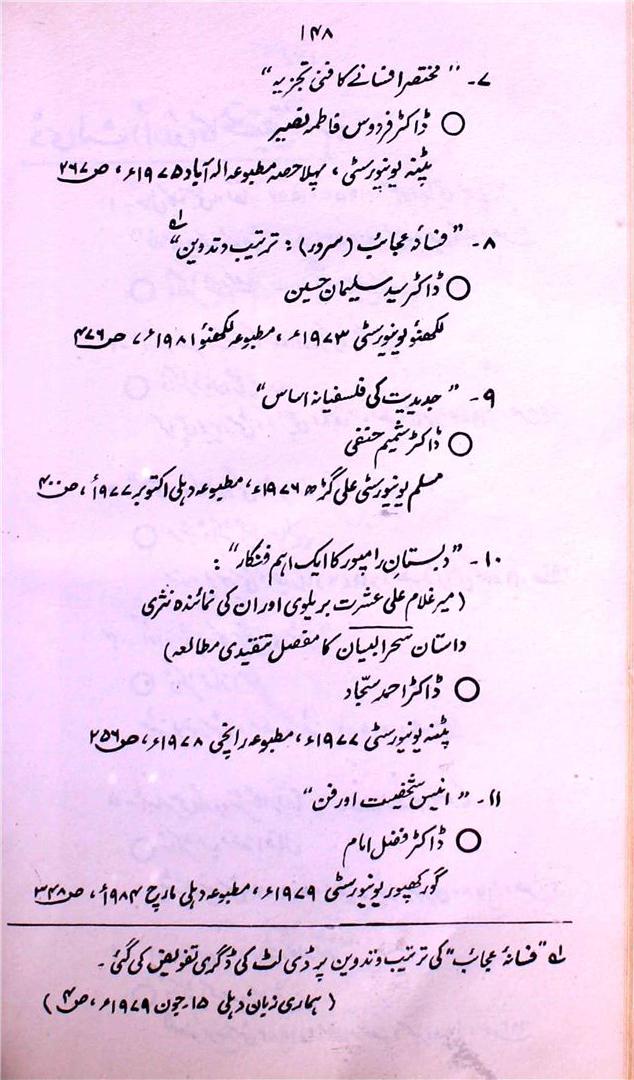 ۱۴۸
۷۔ "مختصر افسانے کا فنی تجزیہ"
○ ڈاکٹر فردوس فاطمہ نصیر
پٹنہ یونیورسٹی، پہلا حصہ مطبوعہ الہ آباد ۱۹۷۵ء، ص ۲۶۷
۸۔ "فسانۂ عجائب (سرور): ترتیب و تدوین"۱؎
○ ڈاکٹر سید سلیمان حسین
لکھنؤ یونیورسٹی ۱۹۷۳ء، مطبوعہ لکھنؤ ۱۹۸۱ء، ص ۴۷۶
۹۔ "جدیدیت کی فلسفیانہ اساس"
○ ڈاکٹر شمیم حنفی
مسلم یونیورسٹی علی گڑھ ۱۹۷۶ء، مطبوعہ دہلی اکتوبر ۱۹۷۷ء، ص ۴۰۰
۱۰۔ "دبستانِ رامپور کا ایک اہم فنکار":
(میر غلام علی عشرت بریلوی اور ان کی نمائندہ نثری
داستان سحر البیان کا مفصل تنقیدی مطالعہ)
○ ڈاکٹر احمد سجّاد
پٹنہ یونیورسٹی ۱۹۷۷ء، مطبوعہ رانچی ۱۹۷۸ء، ص ۲۵۶
۱۱۔ "انیس شخصیت اور فن"
○ ڈاکٹر فضل امام
گورکھپور یونیورسٹی ۱۹۷۹ء، مطبوعہ دہلی مارچ ۱۹۸۴ء، ص ۳۴۸
۱؎ "فسانۂ عجائب" کی ترتیب و تدوین پر ڈی لٹ کی ڈگری تفویض کی گئی۔
(ہماری زبان دہلی ۱۵ جون ۱۹۷۹ء، ص ۴)